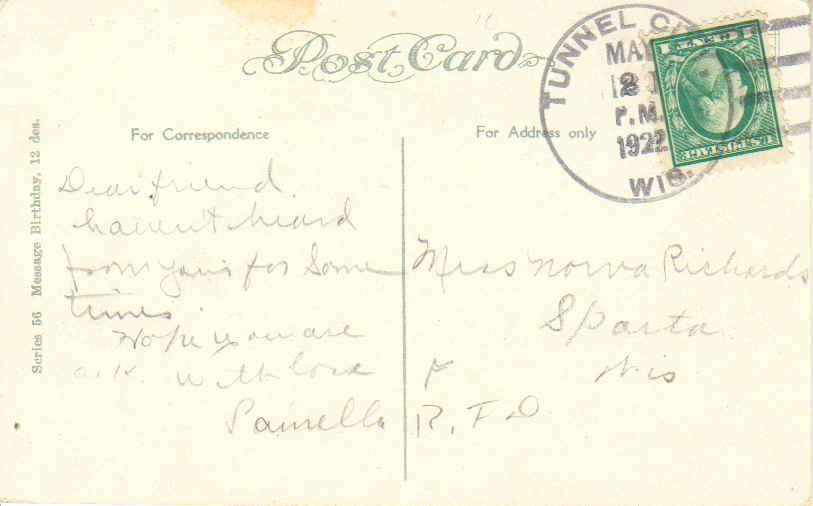 Post Card
TUNNEL CI
MAY
12
P.M.
1922
WIS.
For Correspondence
For Address only
Series 56 Message Birthday, 12 des.
Dear friend
havent heard
from you for some
times.
Hope you are
o.k. with love
Miss Norva Richards
Sparta
Wis
R.F.D